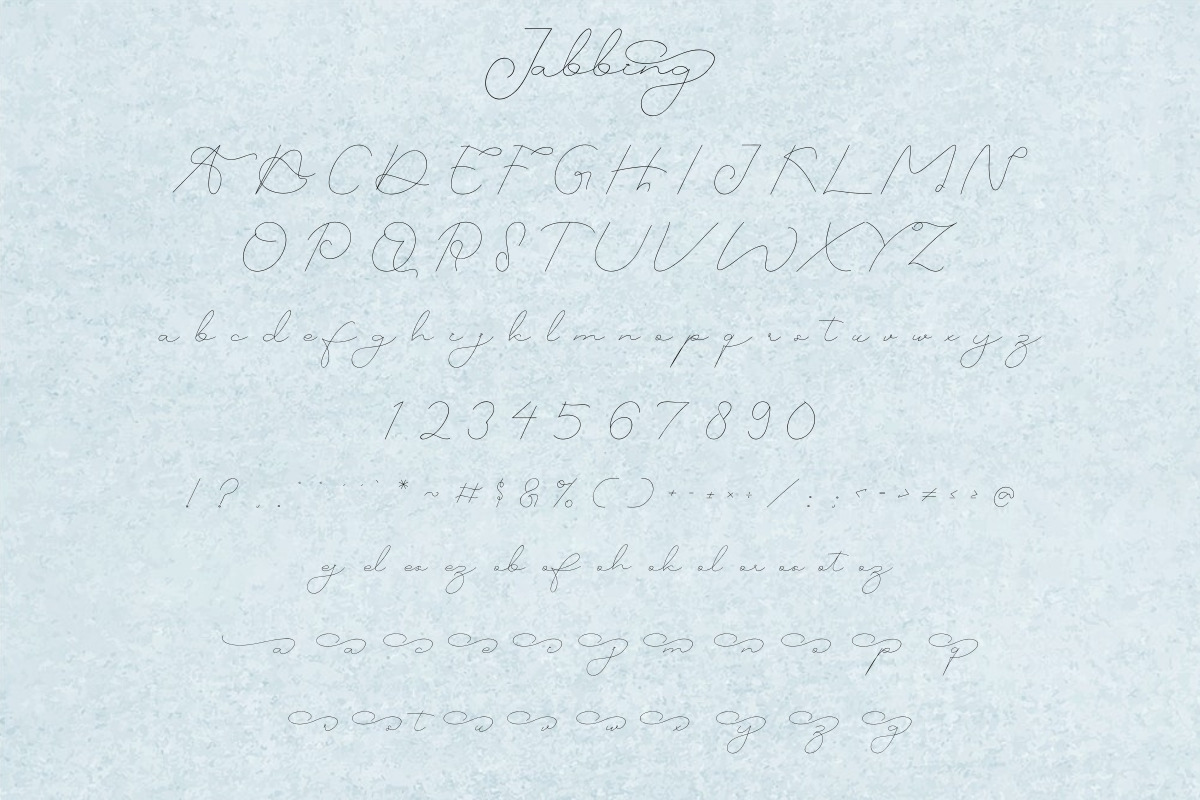 Jabbing
A B C D E F G H I J K L M N
O P Q R S T U V W X Y Z
a b c d e f g h i j k l m n o p q r s t u v w x y z
1 2 3 4 5 6 7 8 9 0
! ? , . * ~ # $ & % ( ) + - ± × ÷ / : ; < = > ≠ ≤ ≥ @
ej el eo ez ob of oh ok ol or os ot oz
a a c e i j m n o p q
s st u v w x y z g